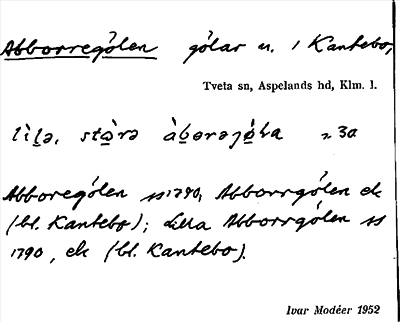 Abborregölen gölar n. i Kantebo,
Tveta sn, Aspelands hd, Klm. l.
lìlə, stò̱rə àbərəjö̀la n 30
Abboregölen ss 1790, Abborrgölen ek
(bl. Kantebo); Lilla Abborrgölen ss
1790, ek (bl. Kantebo).
Ivar Modéer 1952